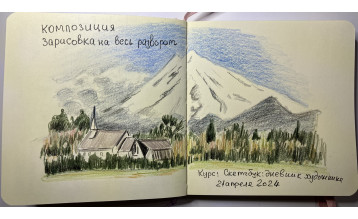 композиция
Зарисовка на весь разворот
Курс: Скетчбук: дневник художника
21 апреля 2024